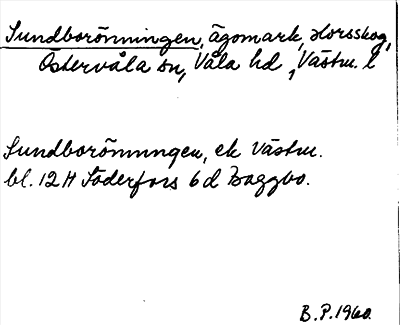 Sundborönningen, ägomark, Horsskog,
Östervåla sn, Våla hd, Västm. l
Sundborönningen, ek Västm.
bl. 12 H Söderfors 6 d Baggbo.
B.P. 1960.